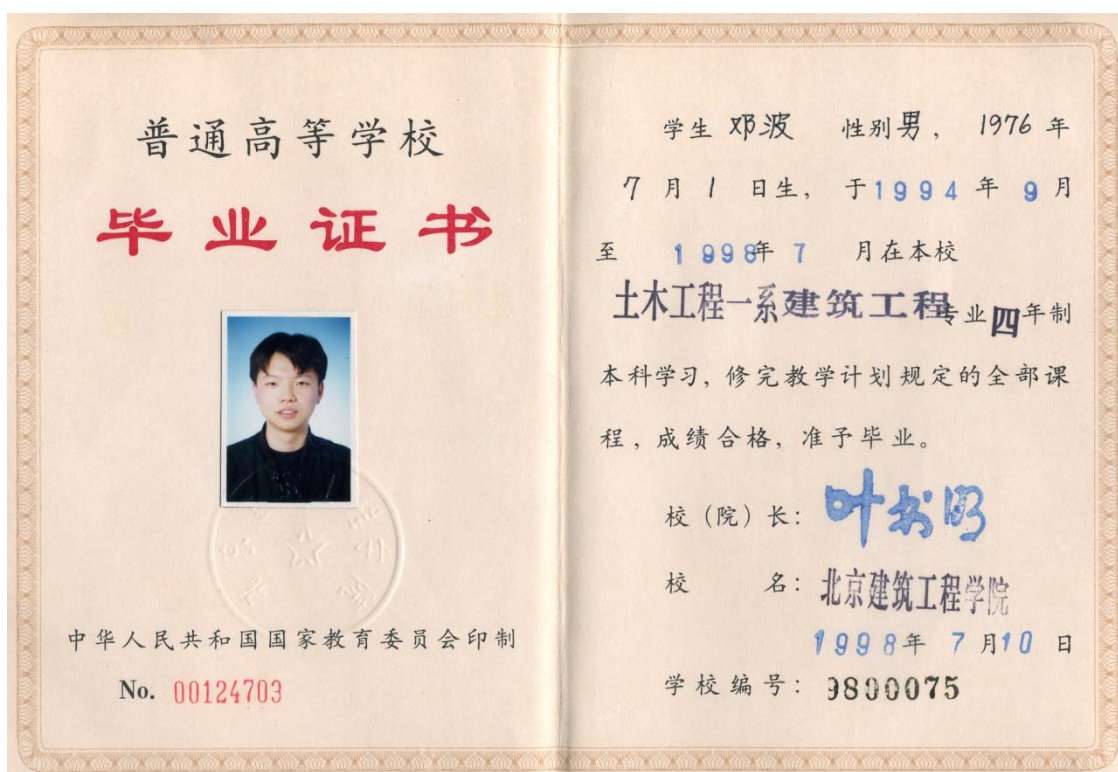 普通高等学校
毕业证书
中华人民共和国国家教育委员会印制
No. 00124703
学生 邓波 性别男， 1976 年
7 月 1 日生， 于1994 年 9 月
至 1998年 7 月在本校
土木工程一系建筑工程专业四年制
本科学习，修完教学计划规定的全部课
程，成绩合格，准予毕业。
校（院）长： 叶书明
校 名： 北京建筑工程学院
1998年 7 月10 日
学校编号： 9800075